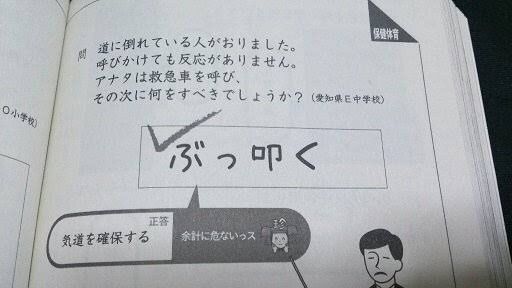 保健体育
問 道に倒れている人がおりました。
呼びかけても反応がありません。
アナタは救急車を呼び、
その次に何をすべきでしょうか？（愛知県E中学校）
O小学校）
ぶっ叩く
正答
気道を確保する
余計に危ないっス
珍